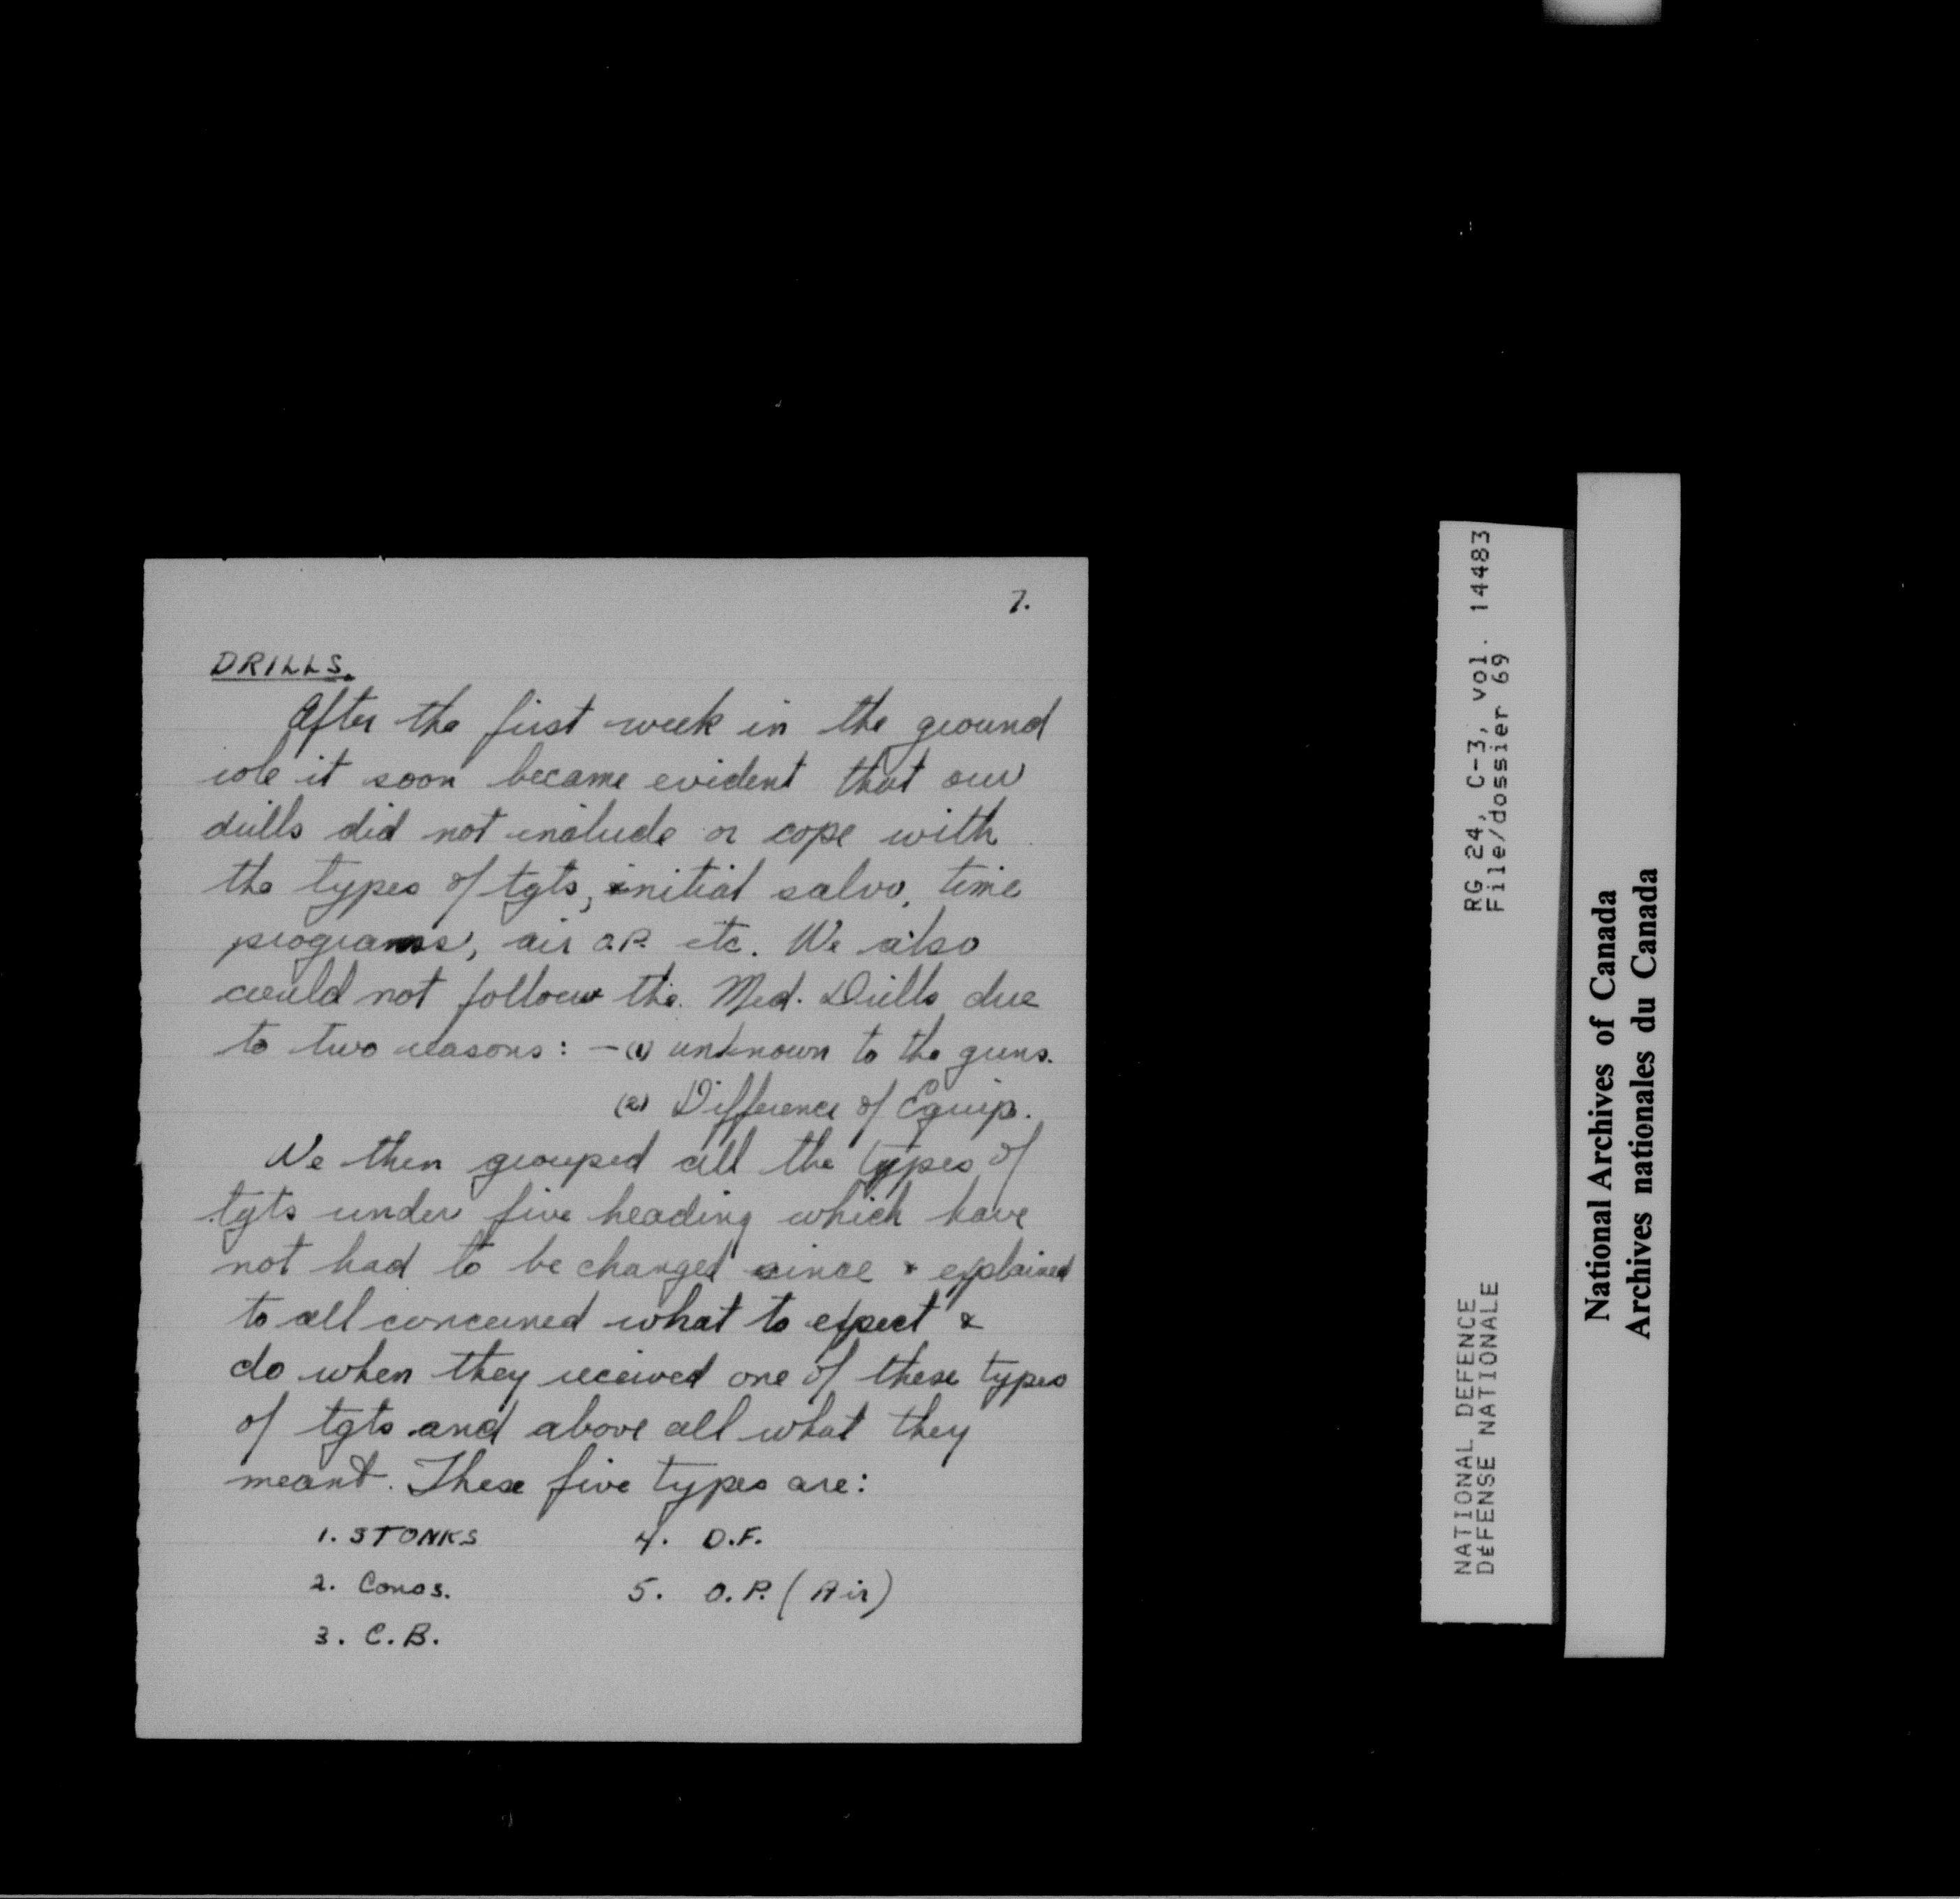 7.
DRILLS.
After the first week in the ground
role it soon became evident that our
drills did not include or cope with
the types of tgts, initial salvo, time
programs, air O.P. etc. We also
could not follow the Med. Drills due
to two reasons: - (1) unknown to the guns.
(2) Difference of Equip.
We then grouped all the types of
tgts under five heading which have
not had to be changed since & explained
to all concerned what to expect &
do when they received one of these types
of tgts and above all what they
meant. These five types are:
1. STONKS
2. Concs.
3. C.B.
4. D.F.
5. O.P. (Air)
RG 24, C-3, vol. 14483
File/dossier 69
NATIONAL DEFENCE
DÉFENSE NATIONALE
National Archives of Canada
Archives nationales du Canada